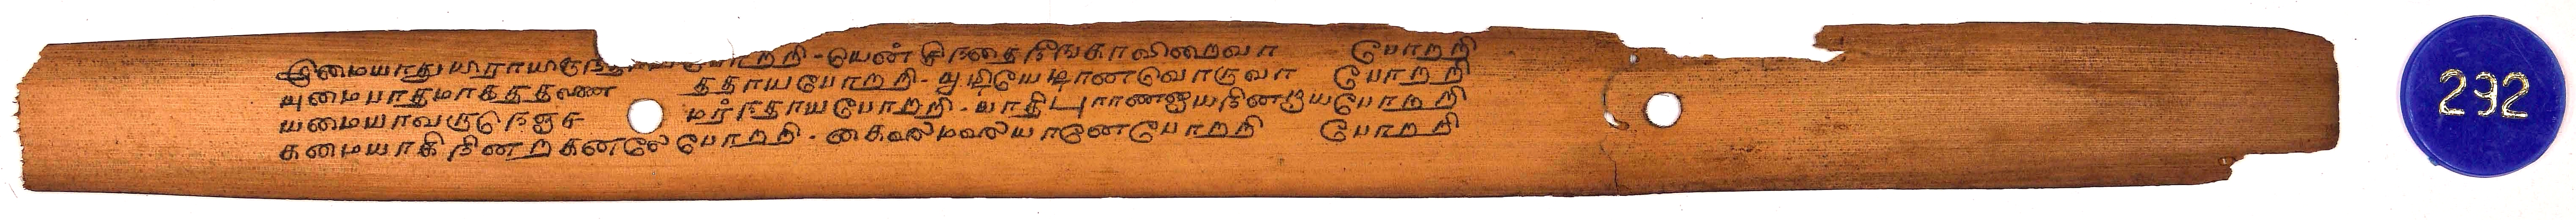 இமையாதுயிராயிருந்தாய்போற்றி - யென் சிந்தைநீங்காவிறைவா போற்றி
யுமைபாதமாகத்தண ததாய்போற்றி - யூழியேழானவொருவா போற்றி
யமையாவருநஞச மர்ந்தாய்போற்றி - யாதிபுராணனாய்நின்றாய்போற்றி
கமையாகிநின்றகனலே போற்றி - கைலைமலையானேபோற்றி போற்றி
292